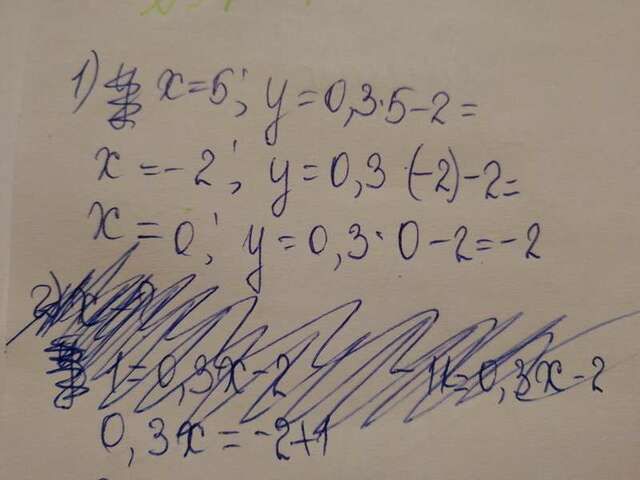 1) x=5; y=0,3·5-2=
x=-2; y=0,3·(-2)-2=
x=0; y=0,3·0-2=-2
2)
1=0,3x-2 -11=0,3x-2
0,3x=-2+1